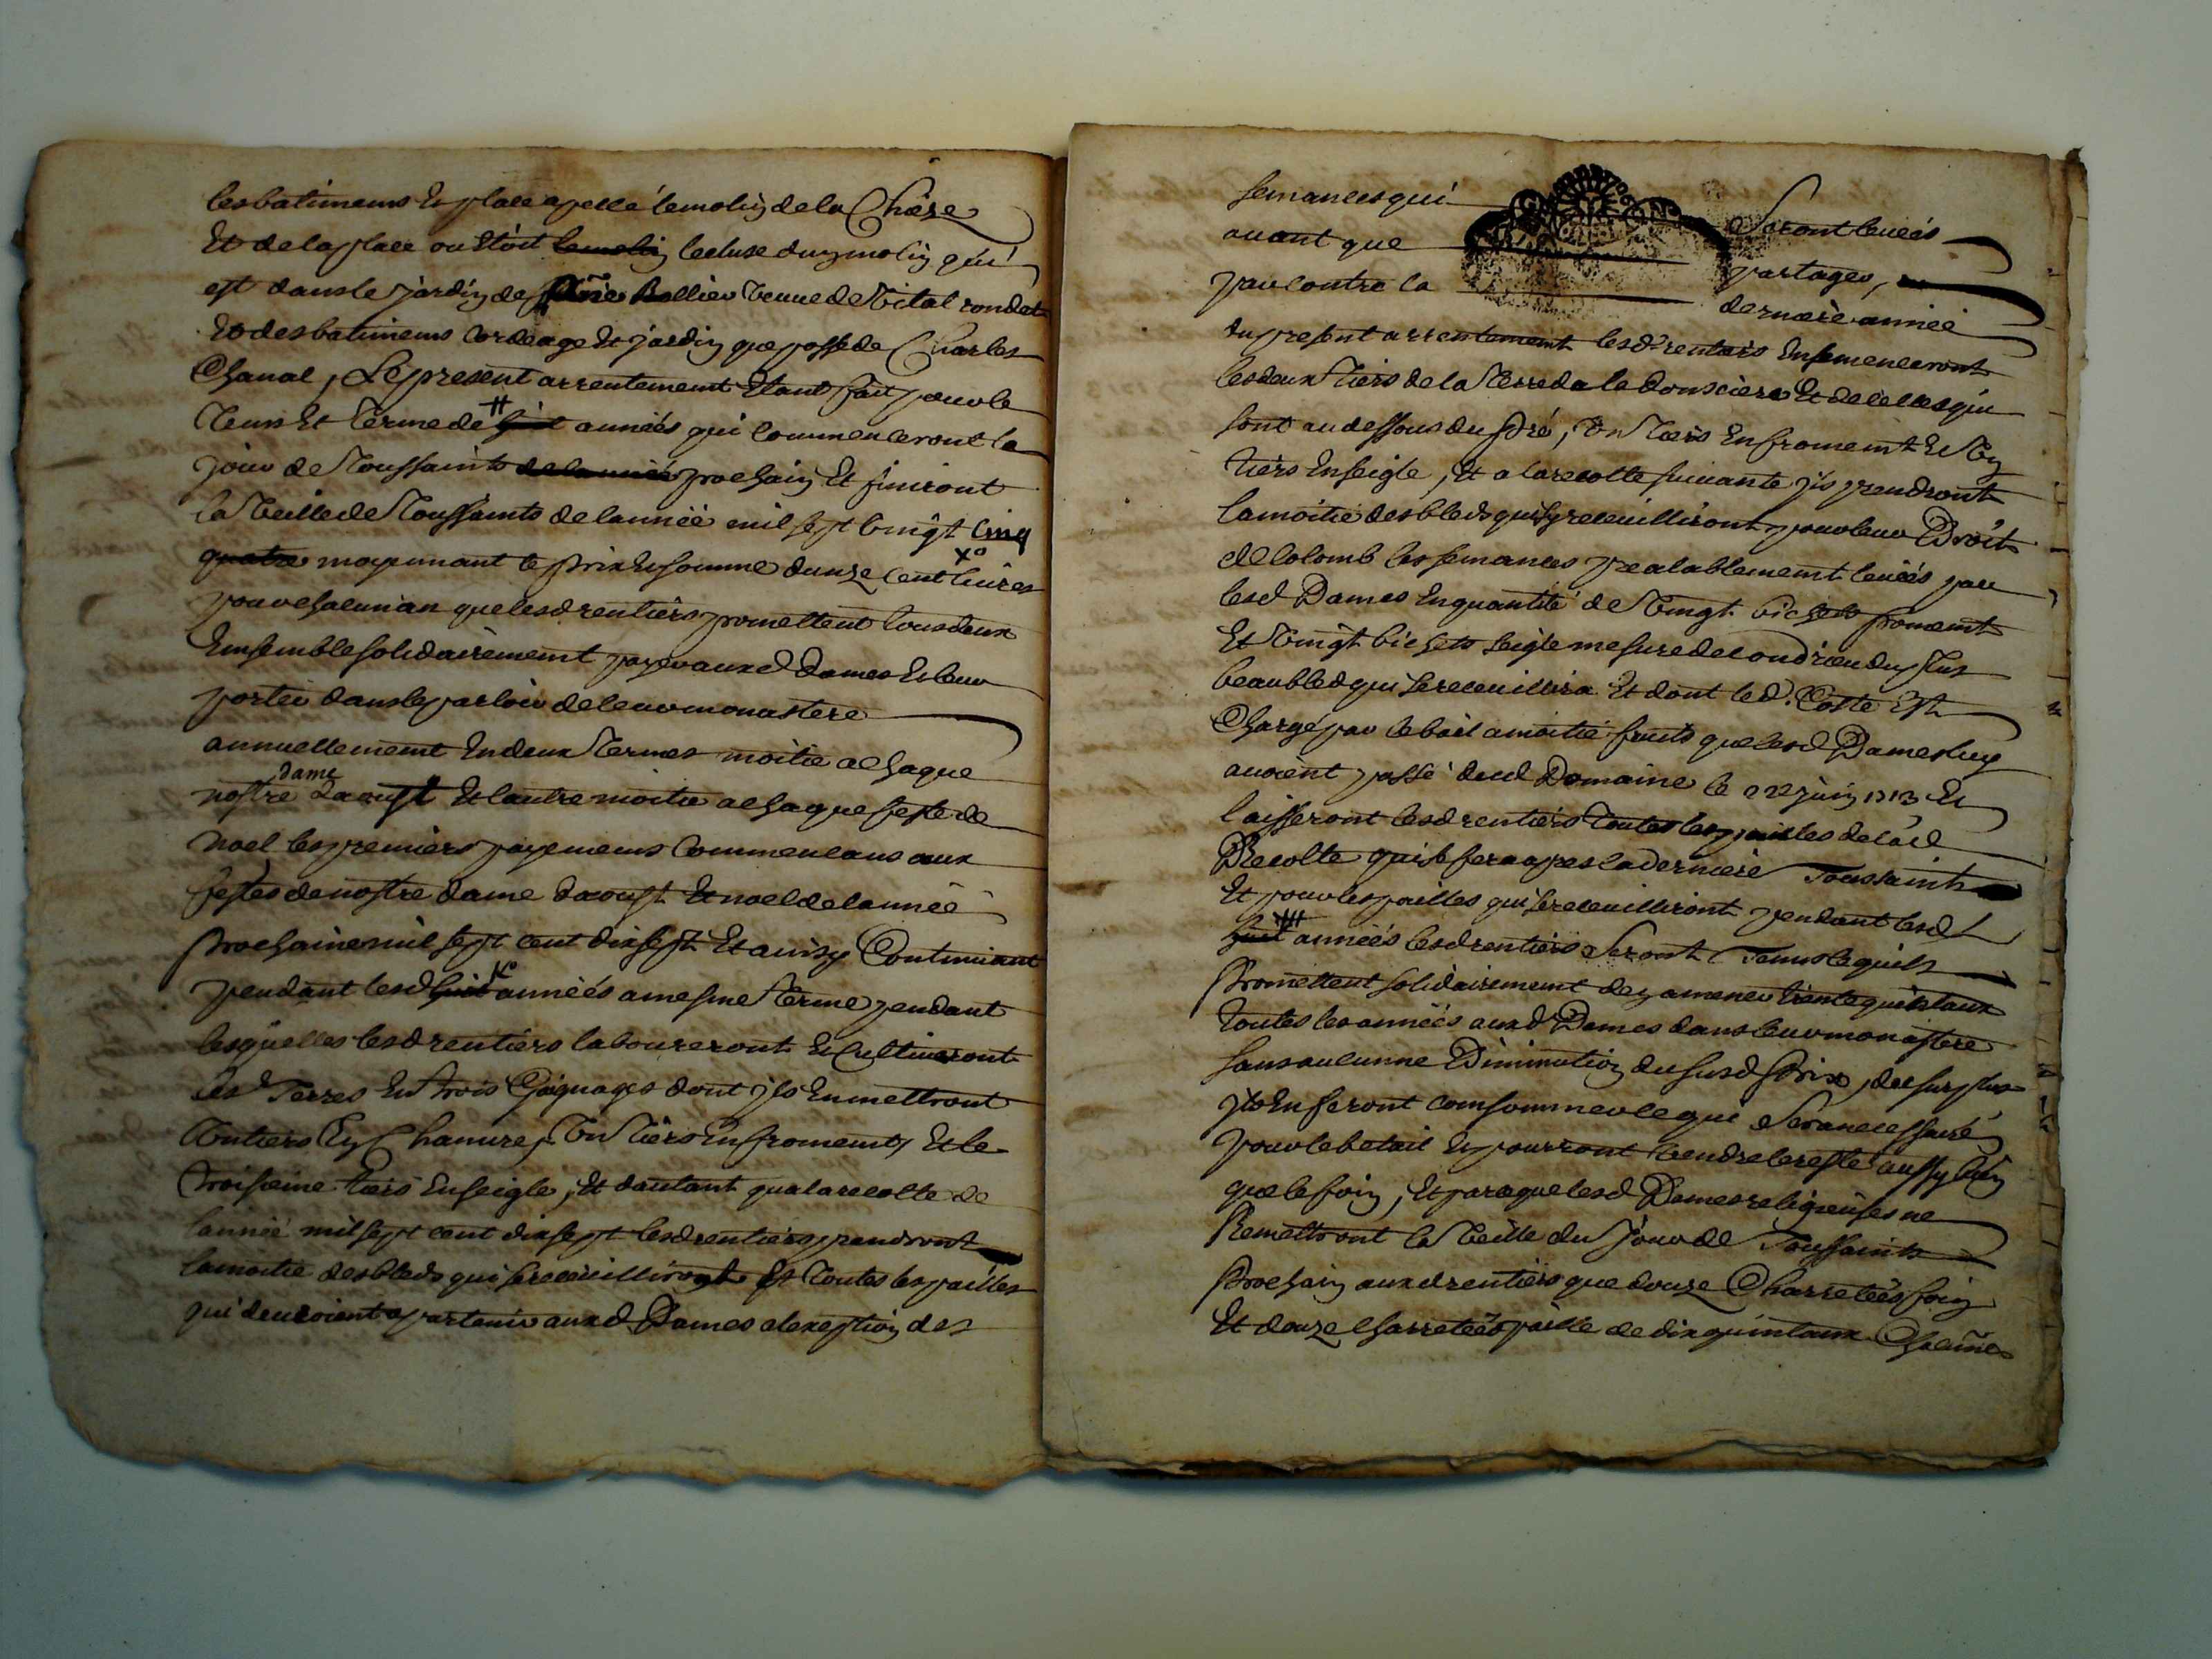 les batimens Et place apellé le molin de la Chaize
Et de la place ou Etoit le molin lecluse du molin qui
est dans le jardin de Bollieu veuve de Vital rondet
Et des batimens Et jardin que possede Charles
Chanal, Le present arrentement Etant fait pour le
tems Et terme de huit années qui commenceront le
jour de Toussaints de lannée prochain Et finiront
la veille de Toussaints de lannée mil sept vingt cinq
quatre moyennant le prix Et somme dunze cent livres
pour chacun an que lesd rentiers promettent tous deux
Ensemble solidairement payer auxd Dames Et leur
porter dans le parloir de leur monastere
annuellement En deux termes moitie a chaque
nostre dame daoust Et lautre moitie a chaque feste de
noel les premiers payemens commencans aux
festes de nostre dame daoust Et noel de lannée
prochaine mil sept cent dix sept Et ainsy Continuant
pendant lesd huit années a mesme terme pendant
lesquelles lesd rentiers laboureront Et Cultiveront
les Terres En trois Gaignages dont jls En mettront
Un tiers En Chanure, Un tiers En froment, Et le
troisieme tiers En seigle, Et dautant qua la recolte de
lannée mil sept cent dix sept lesd rentiers prendront
la moitie des bleds qui se receuilliront Et toutes les pailles
qui deuroient apartenir auxd Dames a lexeption des
semances qui Seront leuées
auant que partager,
par contre la derniere année
du present arrentement lesd rentiers Ensemenceront
les deux tiers de la terre de la Et de celles qui
sont au dessous du pré, Un tiers En froment Et Un
tiers En seigle, Et a la recolte suiuante jls prendront
la moitie des bleds quis y receuilliront pour leur Droit
de colomb les semances prealablement leuées par
lesd Dames En quantité de Vingt bichets froment
Et Vingt bichets seigle mesure de condrieu du plus
beau bled qui se receuillira Et dont led. Coste Est
Chargé par le bail a moitié fruits que lesd Dames luy
auoient passé dud Domaine le 22 juin 1713 Et
laisseront lesd rentiers toutes les pailles de lad
Recolte qui se fera apres la derniere Toussaints
Et pour les pailles qui se receuilliront pendant lesd
huit années lesd rentiers Seront Tenus le quils
Promettent solidairement dey amener trente quintaux
toutes les années auxd Dames dans leur monastere
sans aucunne Diminution du susd Prix, du surplus
jls En feront consommer ce qui Sera necessaire
pour le betail Et pourront vendre le reste aussy bien
que le foin, Et parceque lesd Dames religieuses ne
Remettront la veille du jour de Toussaints
Prochain auxd rentiers que douze Charretées foin
Et douze charretées paille de dix quintaux Chacune